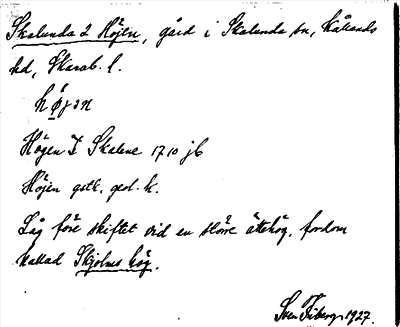 Skalunda 2 Höjen, gård i Skalunda sn, Kållands
hd, Skarab. l.
højən
Högen I Skalene 1710 jb
Höjen gstk. geol. k.
Låg före skiftet vid en större ättehög, fordom
kallad Skjolms hög.
Sven Fiberg 1927.